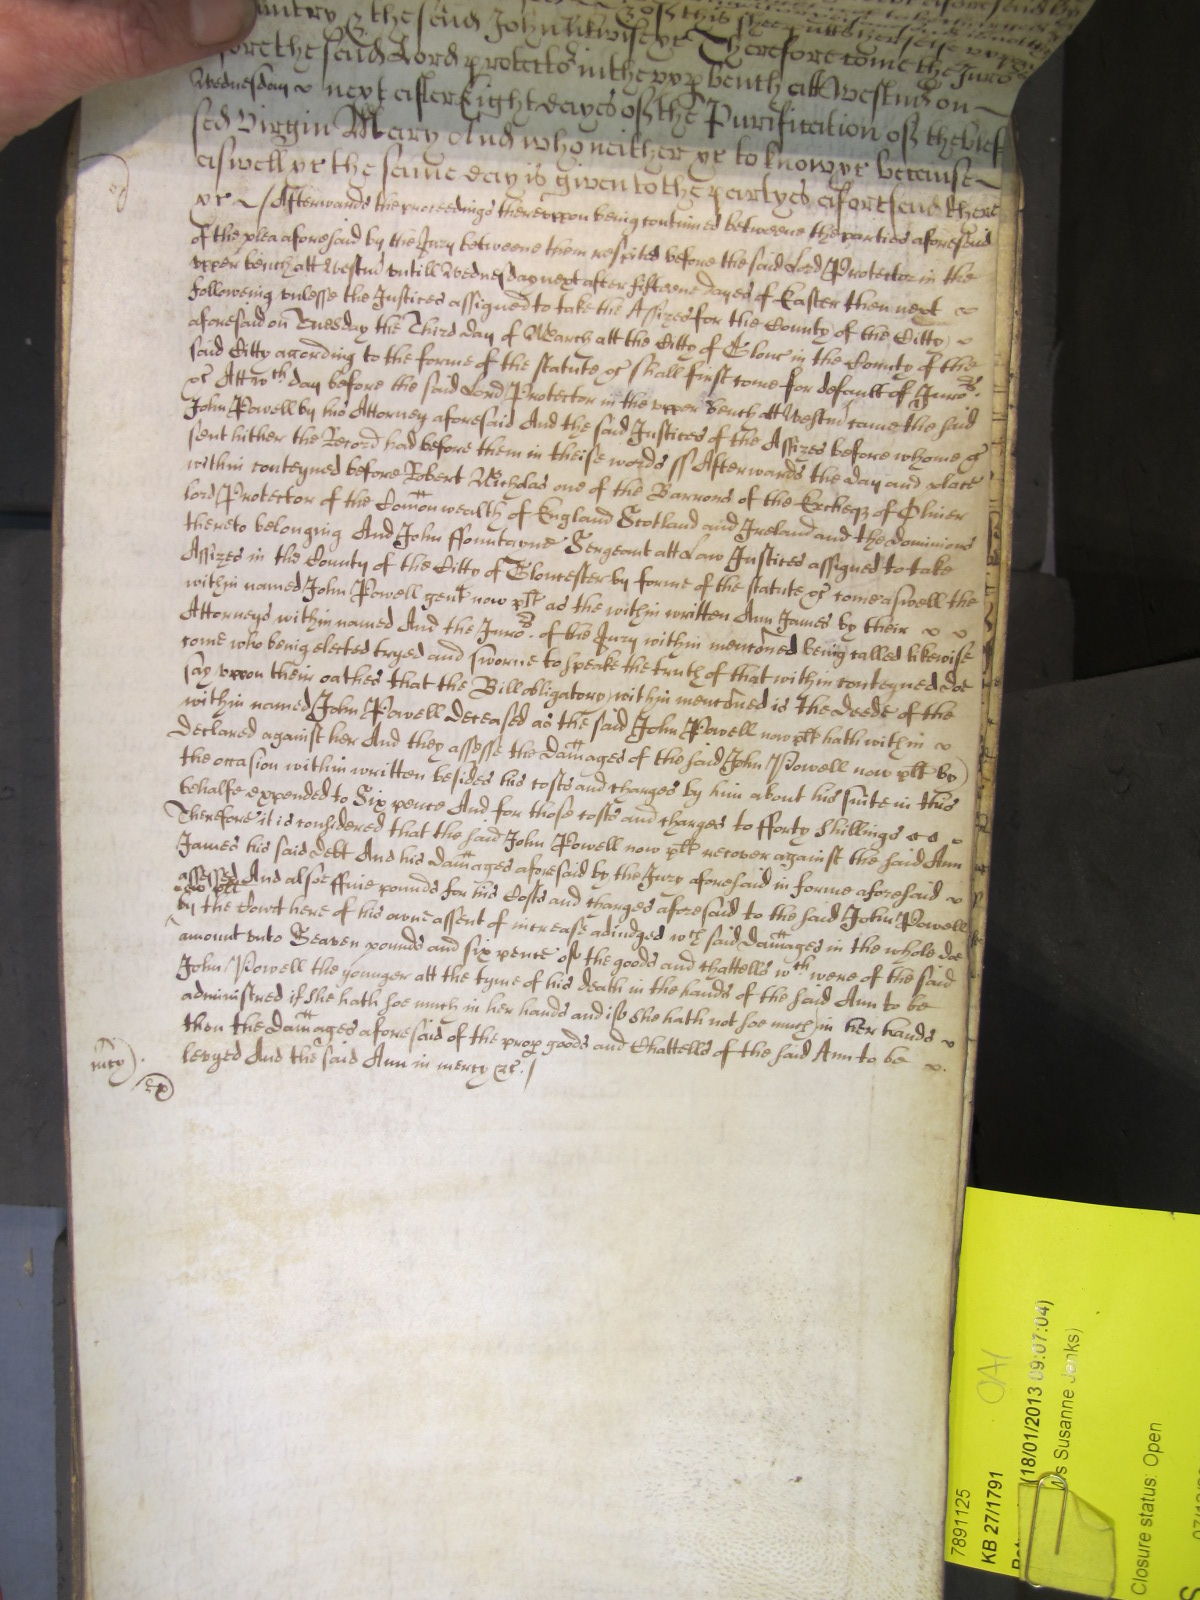 the said John likewise &c Therefore come the Juro^rs
fore the said Lord protecto^r in the upp bench att Westm^r on
Wednesday next after Eight dayes of the Purification of the bles
sed Virgin Mary And who neither &c to know &c because
aswell &c the same day is given to the partyes aforesaid there
&c / Afterwards the proceedings thereuppon being continued betweene the parties aforesaid
of the plea aforesaid by the Jury betweene them respited before the said Lord Protector in the
upper bench att Westm^r untill Wednesday next after fifteene dayes of Easter then next
following unlesse the Justices assigned to take the Assizes for the County of the Citty
aforesaid on Tuesday the Third day of March att the Citty of Glouc in the County of the
said Citty according to the forme of the statute &c shall first come for default of Juro^rs
&c Att w^ch day before the said Lord Protector in the upper bench att Westm^r came the said
John Powell by his Attorney aforesaid And the said Justices of the Assizes before whome &c
sent hither the Record had before them in theise words ss Afterwards the day and place
within conteyned before Robert Nicholas one of the Barrons of the Excheq^r of Oliver
Lord Protector of the Comonwealth of England Scotland and Ireland and the dominions
thereto belonging And John ffountayne Sergeant att Law Justices assigned to take
Assizes in the County of the Citty of Gloucester by forme of the statute &c come aswell the
within named John Powell gent now plt as the within written Ann James by their
Attorneys within named And the Juro^rs of the Jury within mencõned being called likewise
come who being elected tryed and sworne to speake the truth of that within conteyned doe
say uppon their oathes that the Bill obligatory within mencõned is the deede of the
within named John Powell deceased as the said John Powell now plt hath within
declared against her And they assesse the damages of the said John Powell now plt by
the occasion within written besides his costs and charges by him about his suite in this
behalfe expended to Six pence And for those costs and charges to fforty shillings
Therefore it is considered that the said John Powell now plt recover against the said Ann
James his said debt And his damages aforesaid by the Jury aforesaid in forme aforesaid
assessed And alsoe ffive pounds for his Costs and charges aforesaid to the said John Powell
now plt
by the Court here of his owne assent of increase adiudged w^ch said damages in the whole doe
amount unto Seaven pounds and six pence of the goods and chattells w^ch were of the said
John Powell the younger att the tyme of his death in the hands of the said Ann to be
administred if she hath soe much in her hands and if she hath not soe much in her hands
then the damages aforesaid of the prop goods and Chattells of the said Ann to be
levyed And the said Ann in mercy &c /
mcy
7891125
KB 27/1791
(18/01/2013 09:07:04)
Susanne Jenks)
Closure status: Open